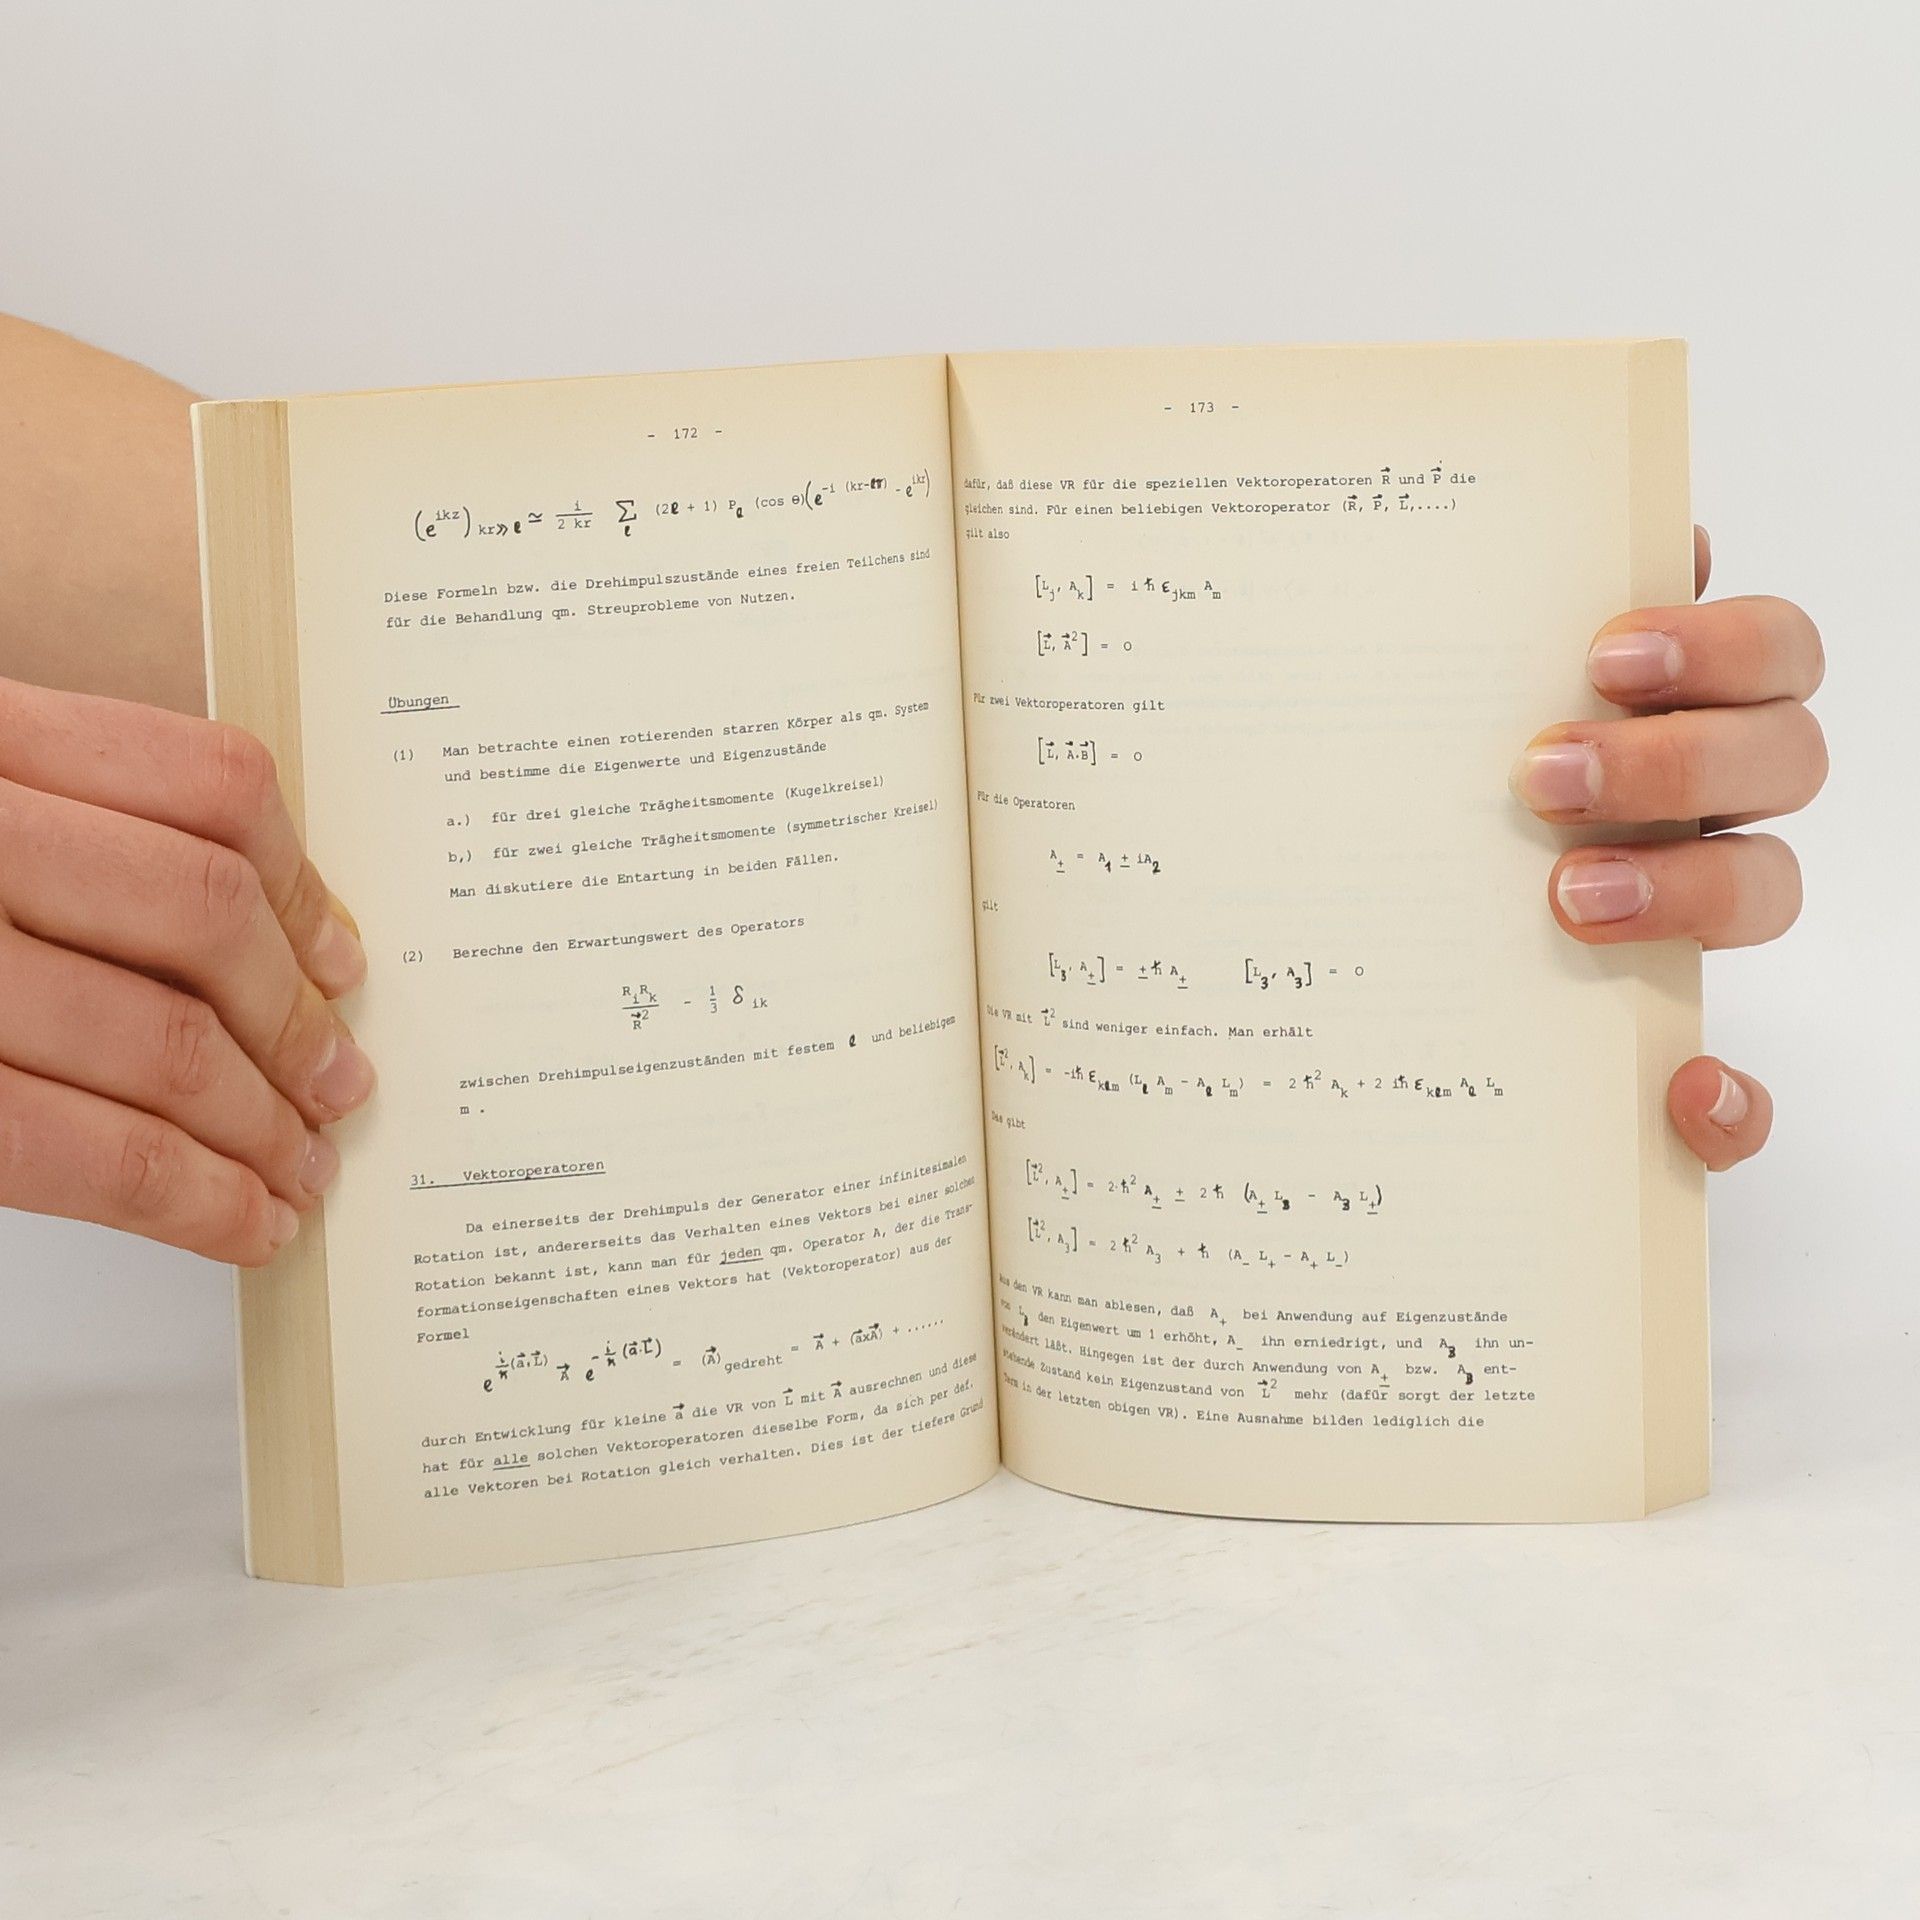 - 172 -
(e^{ikz})_{kr≫ℓ} ≃ \frac{i}{2 kr} Σ_ℓ (2ℓ + 1) P_ℓ (cos θ)(e^{-i (kr-ℓπ)} - e^{ikr})
Diese Formeln bzw. die Drehimpulszustände eines freien Teilchens sind
für die Behandlung qm. Streuprobleme von Nutzen.
Übungen
(1) Man betrachte einen rotierenden starren Körper als qm. System
und bestimme die Eigenwerte und Eigenzustände
a.) für drei gleiche Trägheitsmomente (Kugelkreisel)
b,) für zwei gleiche Trägheitsmomente (symmetrischer Kreisel)
Man diskutiere die Entartung in beiden Fällen.
(2) Berechne den Erwartungswert des Operators
\frac{R_i R_k}{\vec{R}^2} - \frac{1}{3} δ_{ik}
zwischen Drehimpulseigenzuständen mit festem ℓ und beliebigem
m .
31. Vektoroperatoren
Da einerseits der Drehimpuls der Generator einer infinitesimalen
Rotation ist, andererseits das Verhalten eines Vektors bei einer solchen
Rotation bekannt ist, kann man für jeden qm. Operator A, der die Trans-
formationseigenschaften eines Vektors hat (Vektoroperator) aus der
Formel
e^{\frac{i}{ℏ}(\vec{a}.\vec{L})} \vec{A} e^{-\frac{i}{ℏ}(\vec{a}.\vec{L})} = (\vec{A})_{gedreht} = \vec{A} + (\vec{a}x\vec{A}) + ......
durch Entwicklung für kleine \vec{a} die VR von \vec{L} mit \vec{A} ausrechnen und diese
hat für alle solchen Vektoroperatoren dieselbe Form, da sich per def.
alle Vektoren bei Rotation gleich verhalten. Dies ist der tiefere Grund
- 173 -
dafür, daß diese VR für die speziellen Vektoroperatoren \vec{R} und \vec{P} die
gleichen sind. Für einen beliebigen Vektoroperator (\vec{R}, \vec{P}, \vec{L},....)
gilt also
[L_j, A_k] = i ℏ ε_{jkm} A_m
[\vec{L}, \vec{A}^2] = 0
Für zwei Vektoroperatoren gilt
[\vec{L}, \vec{A}.\vec{B}] = 0
Für die Operatoren
A_± = A_1 ± iA_2
gilt
[L_3, A_±] = ±ℏ A_± [L_3, A_3] = 0
Die VR mit \vec{L}^2 sind weniger einfach. Man erhält
[\vec{L}^2, A_k] = -iℏ ε_{kℓm} (L_ℓ A_m - A_ℓ L_m) = 2 ℏ^2 A_k + 2 iℏ ε_{kℓm} A_ℓ L_m
Das gibt
[\vec{L}^2, A_±] = 2·ℏ^2 A_± ± 2 ℏ (A_± L_3 - A_3 L_±)
[\vec{L}^2, A_3] = 2 ℏ^2 A_3 + ℏ (A_- L_+ - A_+ L_-)
Aus den VR kann man ablesen, daß A_+ bei Anwendung auf Eigenzustände
von L_3 den Eigenwert um 1 erhöht, A_- ihn erniedrigt, und A_3 ihn un-
verändert läßt. Hingegen ist der durch Anwendung von A_± bzw. A_3 ent-
stehende Zustand kein Eigenzustand von \vec{L}^2 mehr (dafür sorgt der letzte
Term in der letzten obigen VR). Eine Ausnahme bilden lediglich die